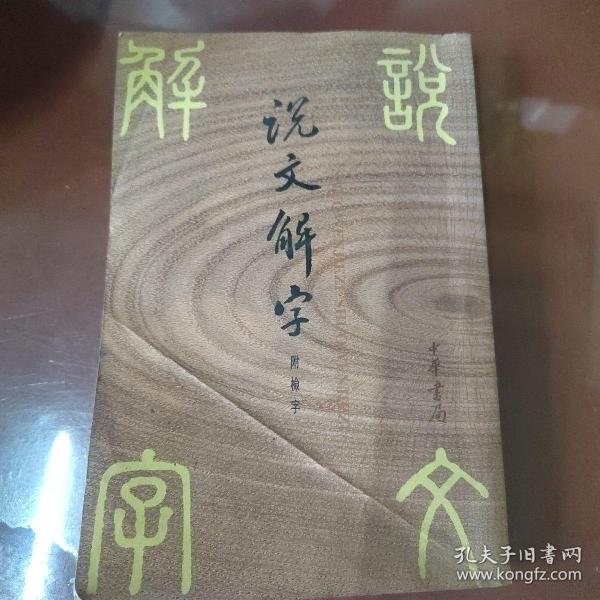 說文
解字
说文解字
附檢字
SHUOWENJIEZI SHUOWENJIEZI
中华書局
孔夫子旧書网
www.kongfz.com